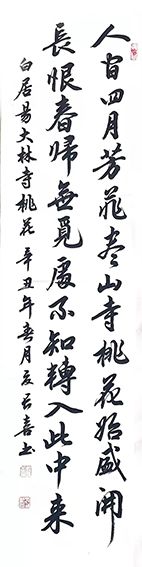 人间四月芳菲尽山寺桃花始盛開
長恨春歸無覓處不知轉入此中来
白居易大林寺桃花 辛丑年春月友吾喜书